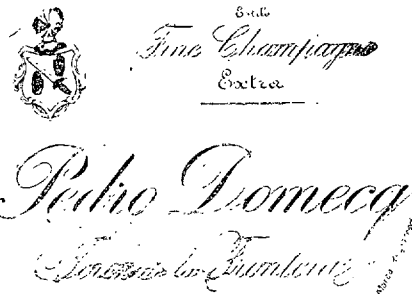 Estilo
Fine Champagne
Extra
Pedro Domecq
Jerez de la Frontera